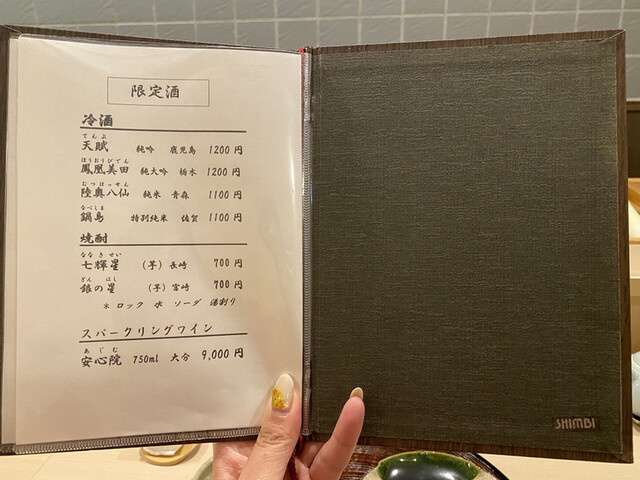 限定酒
冷酒
てんぶ
天賦 純吟 鹿児島 1200円
ほうおうびでん
鳳凰美田 純大吟 栃木 1200円
むつはっせん
陸奥八仙 純米 青森 1100円
なべしま
鍋島 特別純米 佐賀 1100円
焼酎
ななきせい
七輝星 (芋) 長崎 700円
ぎん ほし
銀の星 (芋) 宮崎 700円
※ ロック 水 ソーダ 湯割り
スパークリングワイン
あじむ
安心院 750ml 大分 9,000円
SHIMBI